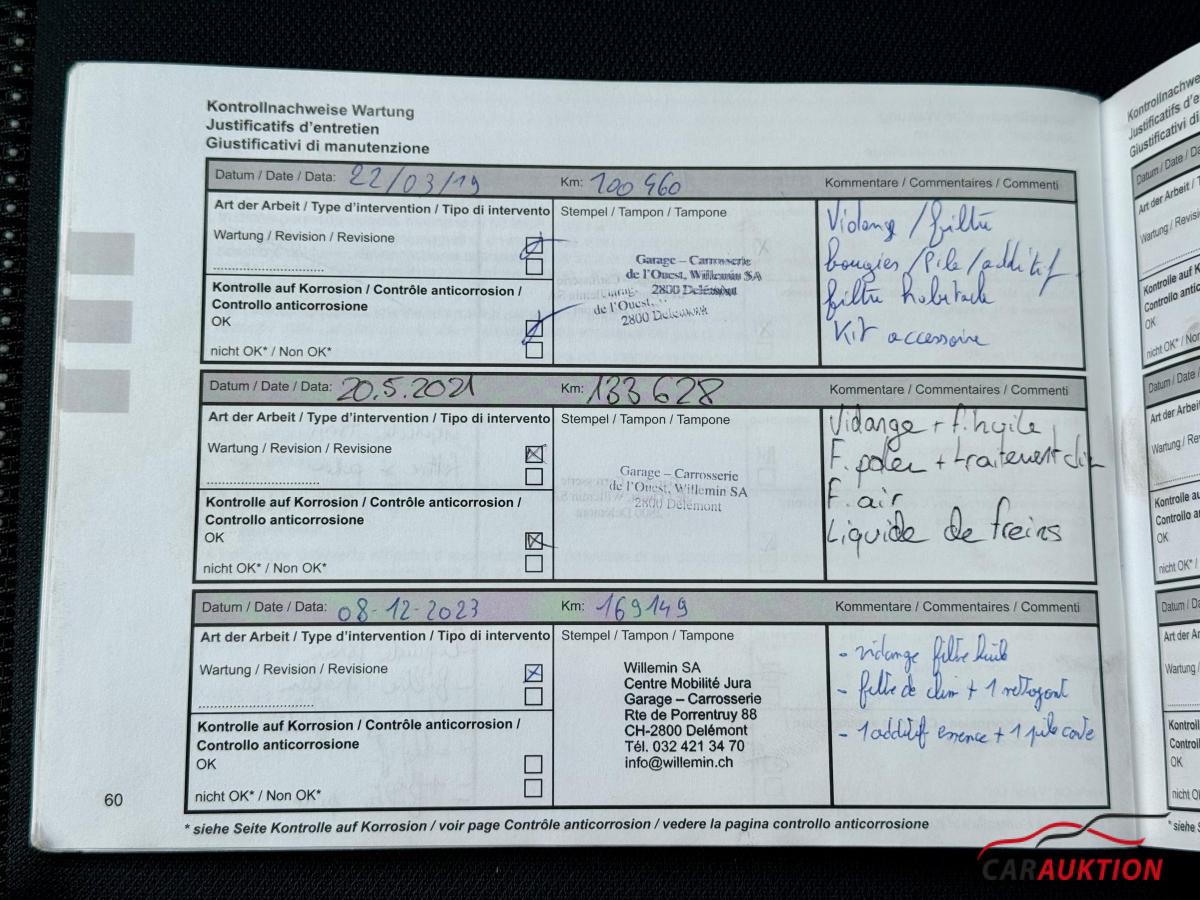 Kontrollnachweise Wartung
Justificatifs d'entretien
Giustificativi di manutenzione
Datum / Date / Data: 22/03/19 Km: 100 460 Kommentare / Commentaires / Commenti
Art der Arbeit / Type d'intervention / Tipo di intervento
Wartung / Revision / Revisione
Kontrolle auf Korrosion / Contrôle anticorrosion /
Controllo anticorrosione
OK
nicht OK* / Non OK*
Stempel / Tampon / Tampone
Garage – Carrosserie
de l'Ouest, Willemin SA
2800 Delémont
de l'Ouest,
2800 Delémont
Vidange / filtre
bougies / Pile / additif
filtre habitacle
Kit accessoire
Datum / Date / Data: 20.5.2021 Km: 133 628 Kommentare / Commentaires / Commenti
Art der Arbeit / Type d'intervention / Tipo di intervento
Wartung / Revision / Revisione
Kontrolle auf Korrosion / Contrôle anticorrosion /
Controllo anticorrosione
OK
nicht OK* / Non OK*
Stempel / Tampon / Tampone
Garage – Carrosserie
de l'Ouest, Willemin SA
2800 Delémont
Vidange + f. huile
F. polen + traitement clim
F. air
Liquide de freins
Datum / Date / Data: 08-12-2023 Km: 169149 Kommentare / Commentaires / Commenti
Art der Arbeit / Type d'intervention / Tipo di intervento
Wartung / Revision / Revisione
Kontrolle auf Korrosion / Contrôle anticorrosion /
Controllo anticorrosione
OK
nicht OK* / Non OK*
Stempel / Tampon / Tampone
Willemin SA
Centre Mobilité Jura
Garage – Carrosserie
Rte de Porrentruy 88
CH-2800 Delémont
Tél. 032 421 34 70
info@willemin.ch
- vidange filtre huile
- filtre de clim + 1 nettoyant
- 1 additif essence + 1 pile carte
60
* siehe Seite Kontrolle auf Korrosion / voir page Contrôle anticorrosion / vedere la pagina controllo anticorrosione
CARAUKTION